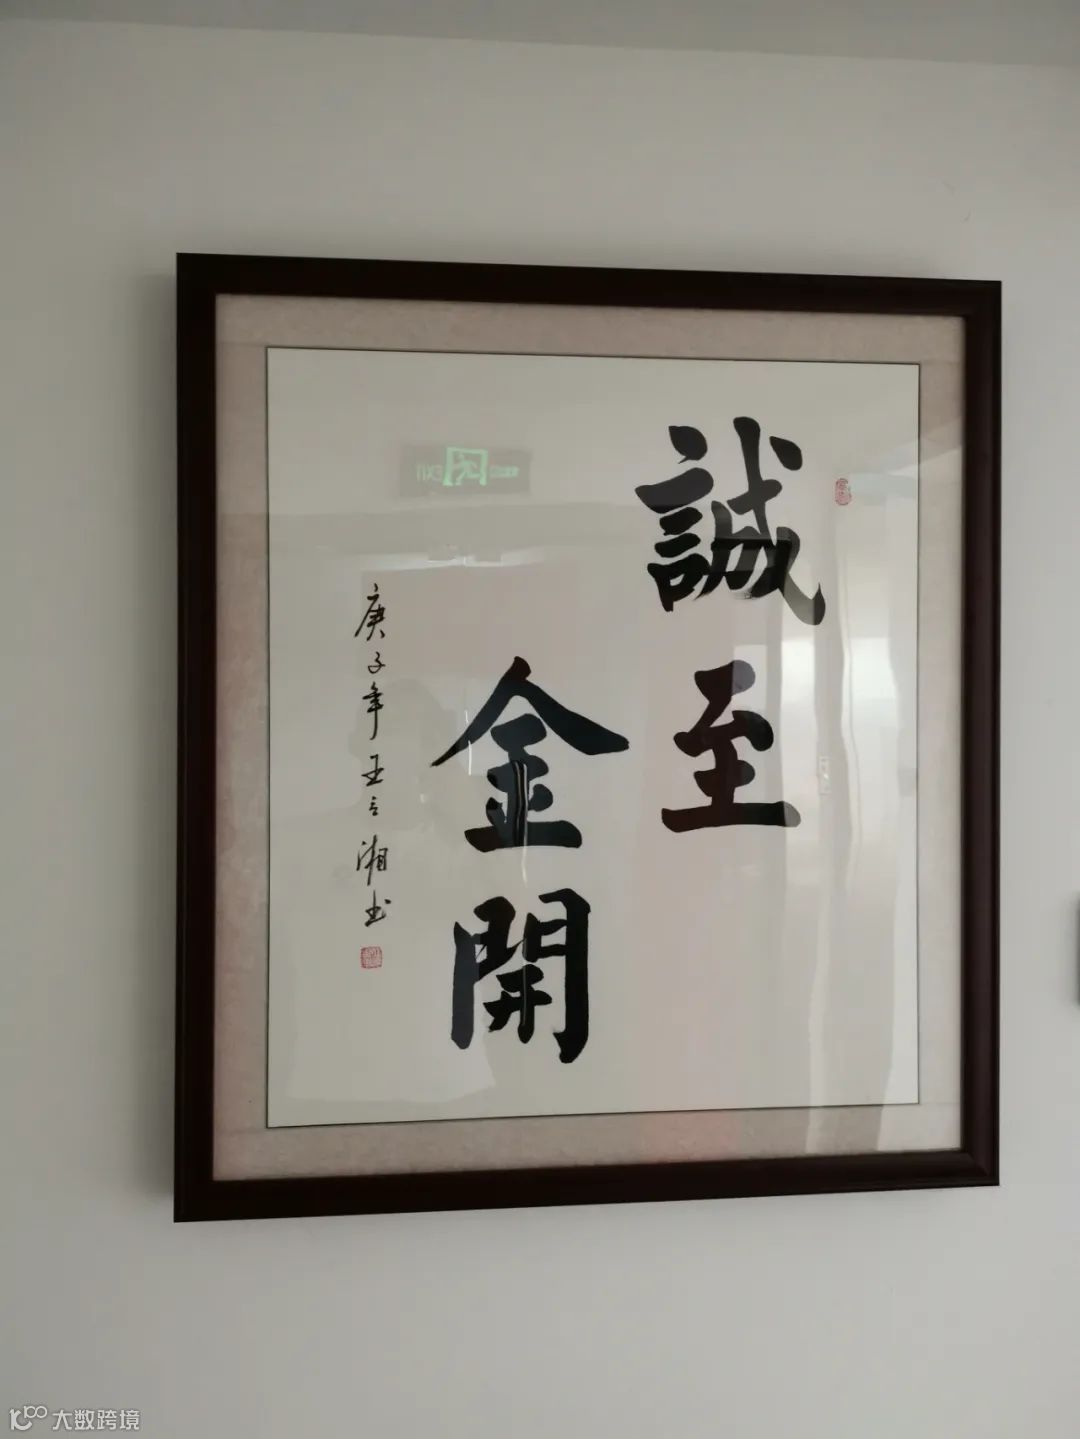 誠至
金開
庚子年王立湘书
大数跨境